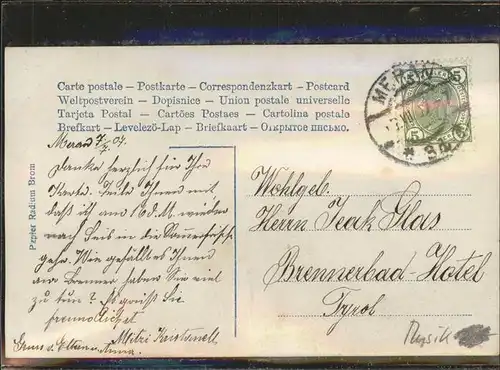 Carte postale – Postkarte – Correspondenzkart – Postcard
Weltpostverein – Dopisnice – Union postale universelle
Tarjeta Postal – Cartões Postaes – Cartolina postale
Brefkort – Levelező-Lap – Briefkaart – Открытое письмо.
Papier Radium Brom
MERAN
5 5
Meran 7/7. 07.
Danke herzlich für Ihre
Karte. Teile Ihnen mit
daß ich am 16. d. M. wieder
nach Seis in die Sommerfrische
gehe. Wie gefällt es Ihnen
am Brenner haben Sie viel
zu tun? Es grüsst Sie
freundlichst
Mitzi
Gruss v. Eltern u. Anna.
Wohlgeb.
Herrn Glas
Brennerbad-Hotel
Tyrol